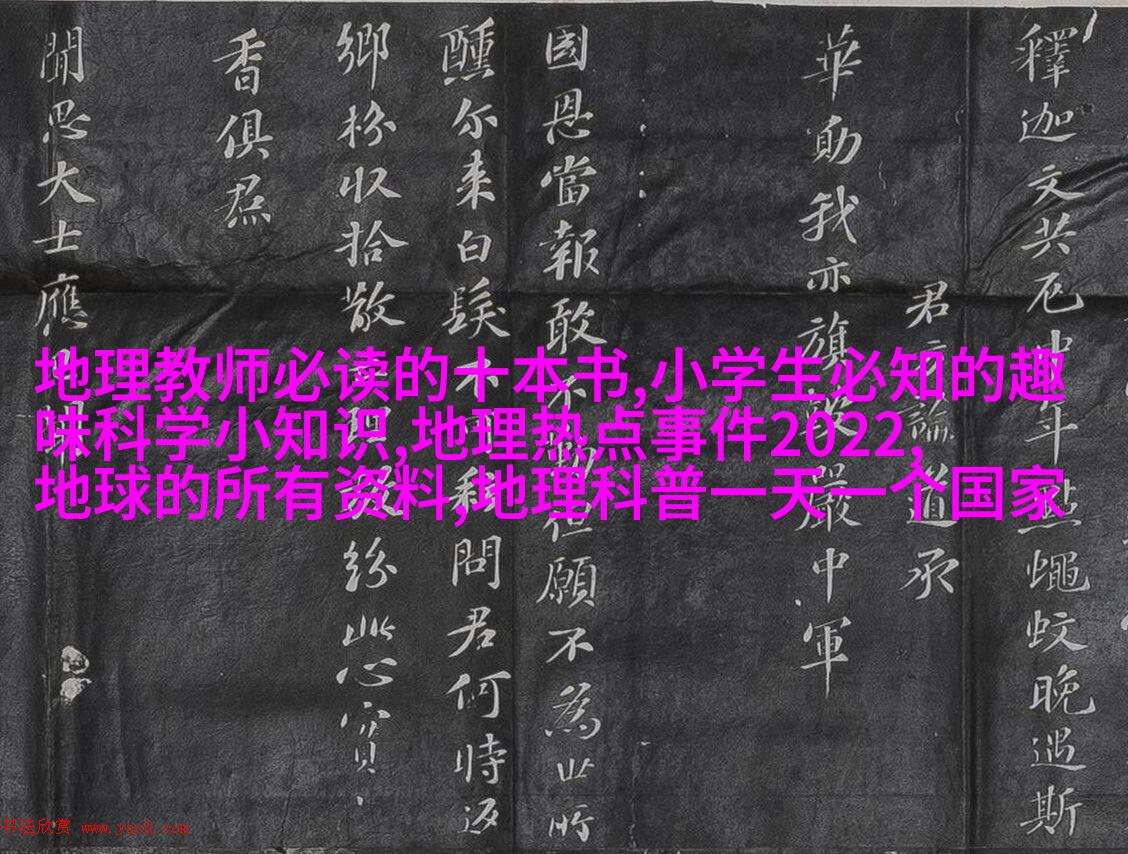 地理教师必读的十本书,小学生必知的趣
味科学小知识,地理热点事件2022,
地球的所有资料,地理科普一天一个国家
釋迦文共厄中年點蠅蚊晚遇斯
君方論道承
華勛我亦旗鼓嚴中軍
國恩當報敢不勤但願不為世所
醺尔来白髮不可耘問君何時返
鄉枌収拾散理紛此心實
香俱焄
聞思大士應
书法欣赏 www.yac8.com